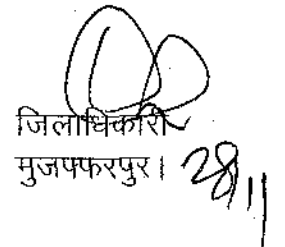 जिलाधिकारी
मुजफ्फरपुर। 28/11